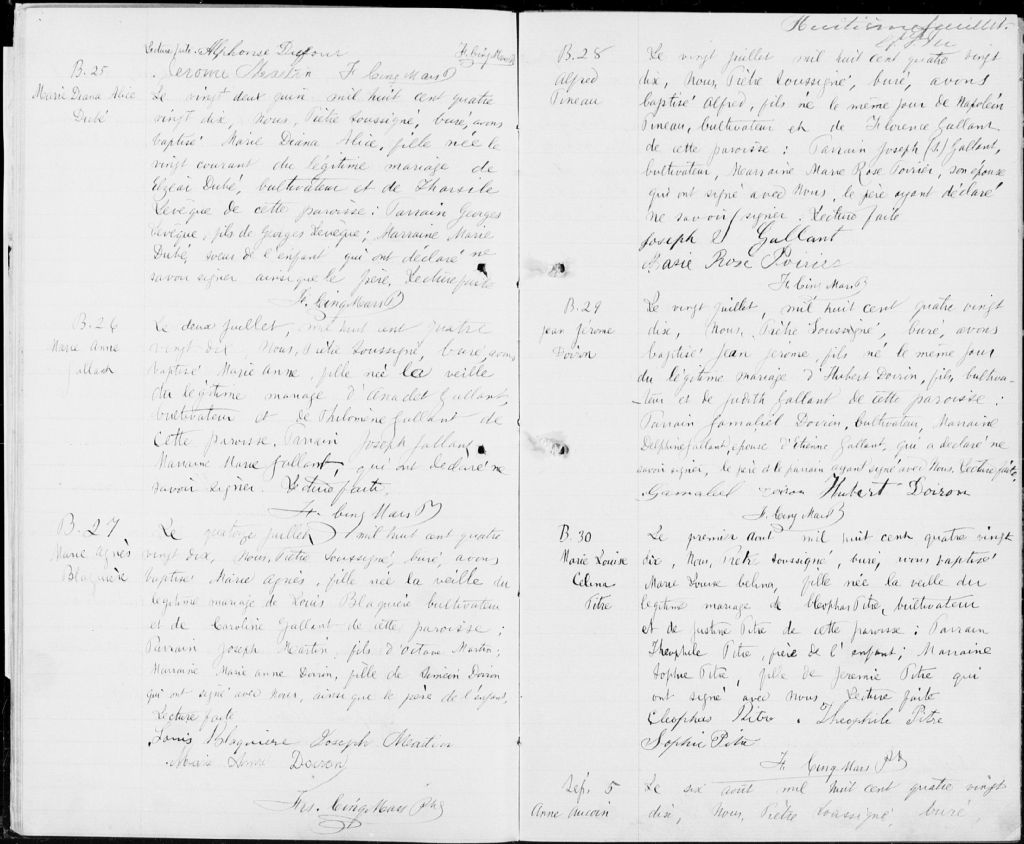 Lecture faite. Alphonse Dufour
Jerome Martin F. Cinq Mars Ptr
F. Cinq Mars Ptr
B. 25
Marie Diana Alice
Dubé
Le vingt deux juin mil huit cent quatre
vingt dix, Nous, Prêtre Soussigné, Curé, avons
baptisé Marie Diana Alice, fille née le
vingt courant du légitime mariage de
Elzéar Dubé, cultivateur et de Tharsile
Levêque de cette paroisse: Parrain Georges
Leveque, fils de Georges Leveque; Marraine Marie
Dubé, soeur de l'enfant qui ont déclaré ne
savoir signer ainsi que le père, Lecture faite
F. Cinq Mars Ptr
B. 26
Marie Anne
Gallant
Le deux juillet, mil huit cent quatre
vingt dix, Nous, Prêtre Soussigné, Curé, avons
baptisé Marie Anne, fille née la veille
du légitime mariage d'Anaclet Gallant,
cultivateur et de Philomène Gallant de
cette paroisse. Parrain Joseph Gallant
Marraine Marie Gallant, qui ont déclaré ne
savoir signer. Lecture faite.
F. Cinq Mars Ptr
B. 27
Marie Agnès
Blaquière
Le quatorze juillet mil huit cent quatre
vingt dix, Nous, Prêtre Soussigné, Curé, avons
baptisé Marie Agnès, fille née la veille du
légitime mariage de Louis Blaquière cultivateur
et de Caroline Gallant de cette paroisse;
Parrain Joseph Martin, fils d'Octave Martin;
Marraine Marie Anne Doiron, fille de Siméon Doiron
qui ont signé avec Nous, ainsi que le père de l'enfant,
Lecture faite
Louis Blaquiere Joseph Martin
Marie Anne Doiron
Frs. Cinq Mars Ptr
Huitième feuillet.
B. 28
Alfred
Pineau
Le vingt juillet mil huit cent quatre vingt
dix, Nous, Prêtre Soussigné, Curé, avons
baptisé Alfred, fils né le même jour de Napoléon
Pineau, cultivateur et de Florence Gallant
de cette paroisse: Parrain Joseph (L) Gallant,
cultivateur, Marraine Marie Rose Poirier, son épouse
qui ont signé avec Nous, le père ayant déclaré
ne savoir signer. Lecture faite
Joseph L Gallant
Marie Rose Poirier
F. Cinq Mars Ptr
B. 29
Jean Jérome
Doiron
Le vingt juillet, mil huit cent quatre vingt
dix, Nous, Prêtre Soussigné, Curé, avons
baptisé Jean Jérome, fils né le même jour
du légitime mariage d'Hubert Doiron, fils, cultiva-
-teur et de Judith Gallant de cette paroisse:
Parrain Gamaliel Doiron, Cultivateur, Marraine
Delphine Gallant, épouse d'Etienne Gallant, qui a déclaré ne
savoir signer, le père et le parrain ayant signé avec Nous. Lecture faite,
Gamaliel Doiron Hubert Doiron
F. Cinq Mars Ptr
B. 30
Marie Louise
Célina
Pitre
Le premier Aout mil huit cent quatre vingt
dix, Nous, Prêtre Soussigné, Curé, avons baptisé
Marie Louise Celina, fille née la veille du
légitime mariage de Cleophas Pitre, cultivateur
et de Justine Pitre de cette paroisse: Parrain
Theophile Pitre, frère de l'enfant; Marraine
Sophie Pitre, fille de Jeremie Pitre qui
ont signé avec nous, Lecture faite
Cleophas Pitre. Theophile Pitre
Sophie Pitre
F. Cinq Mars Ptr
Sep. 5
Anne Aucoin
Le six août mil huit cent quatre vingt
dix, Nous, Prêtre Soussigné, Curé,